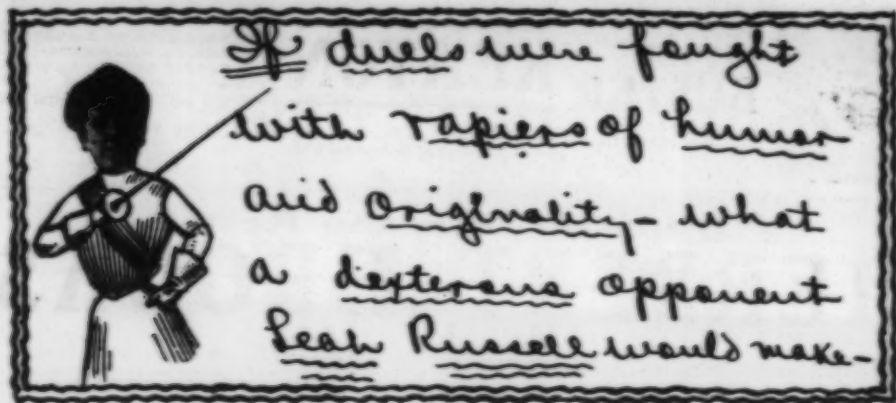 If duels were fought
with rapiers of humor
and originality - what
a dexterous opponent
Leah Russell would make -